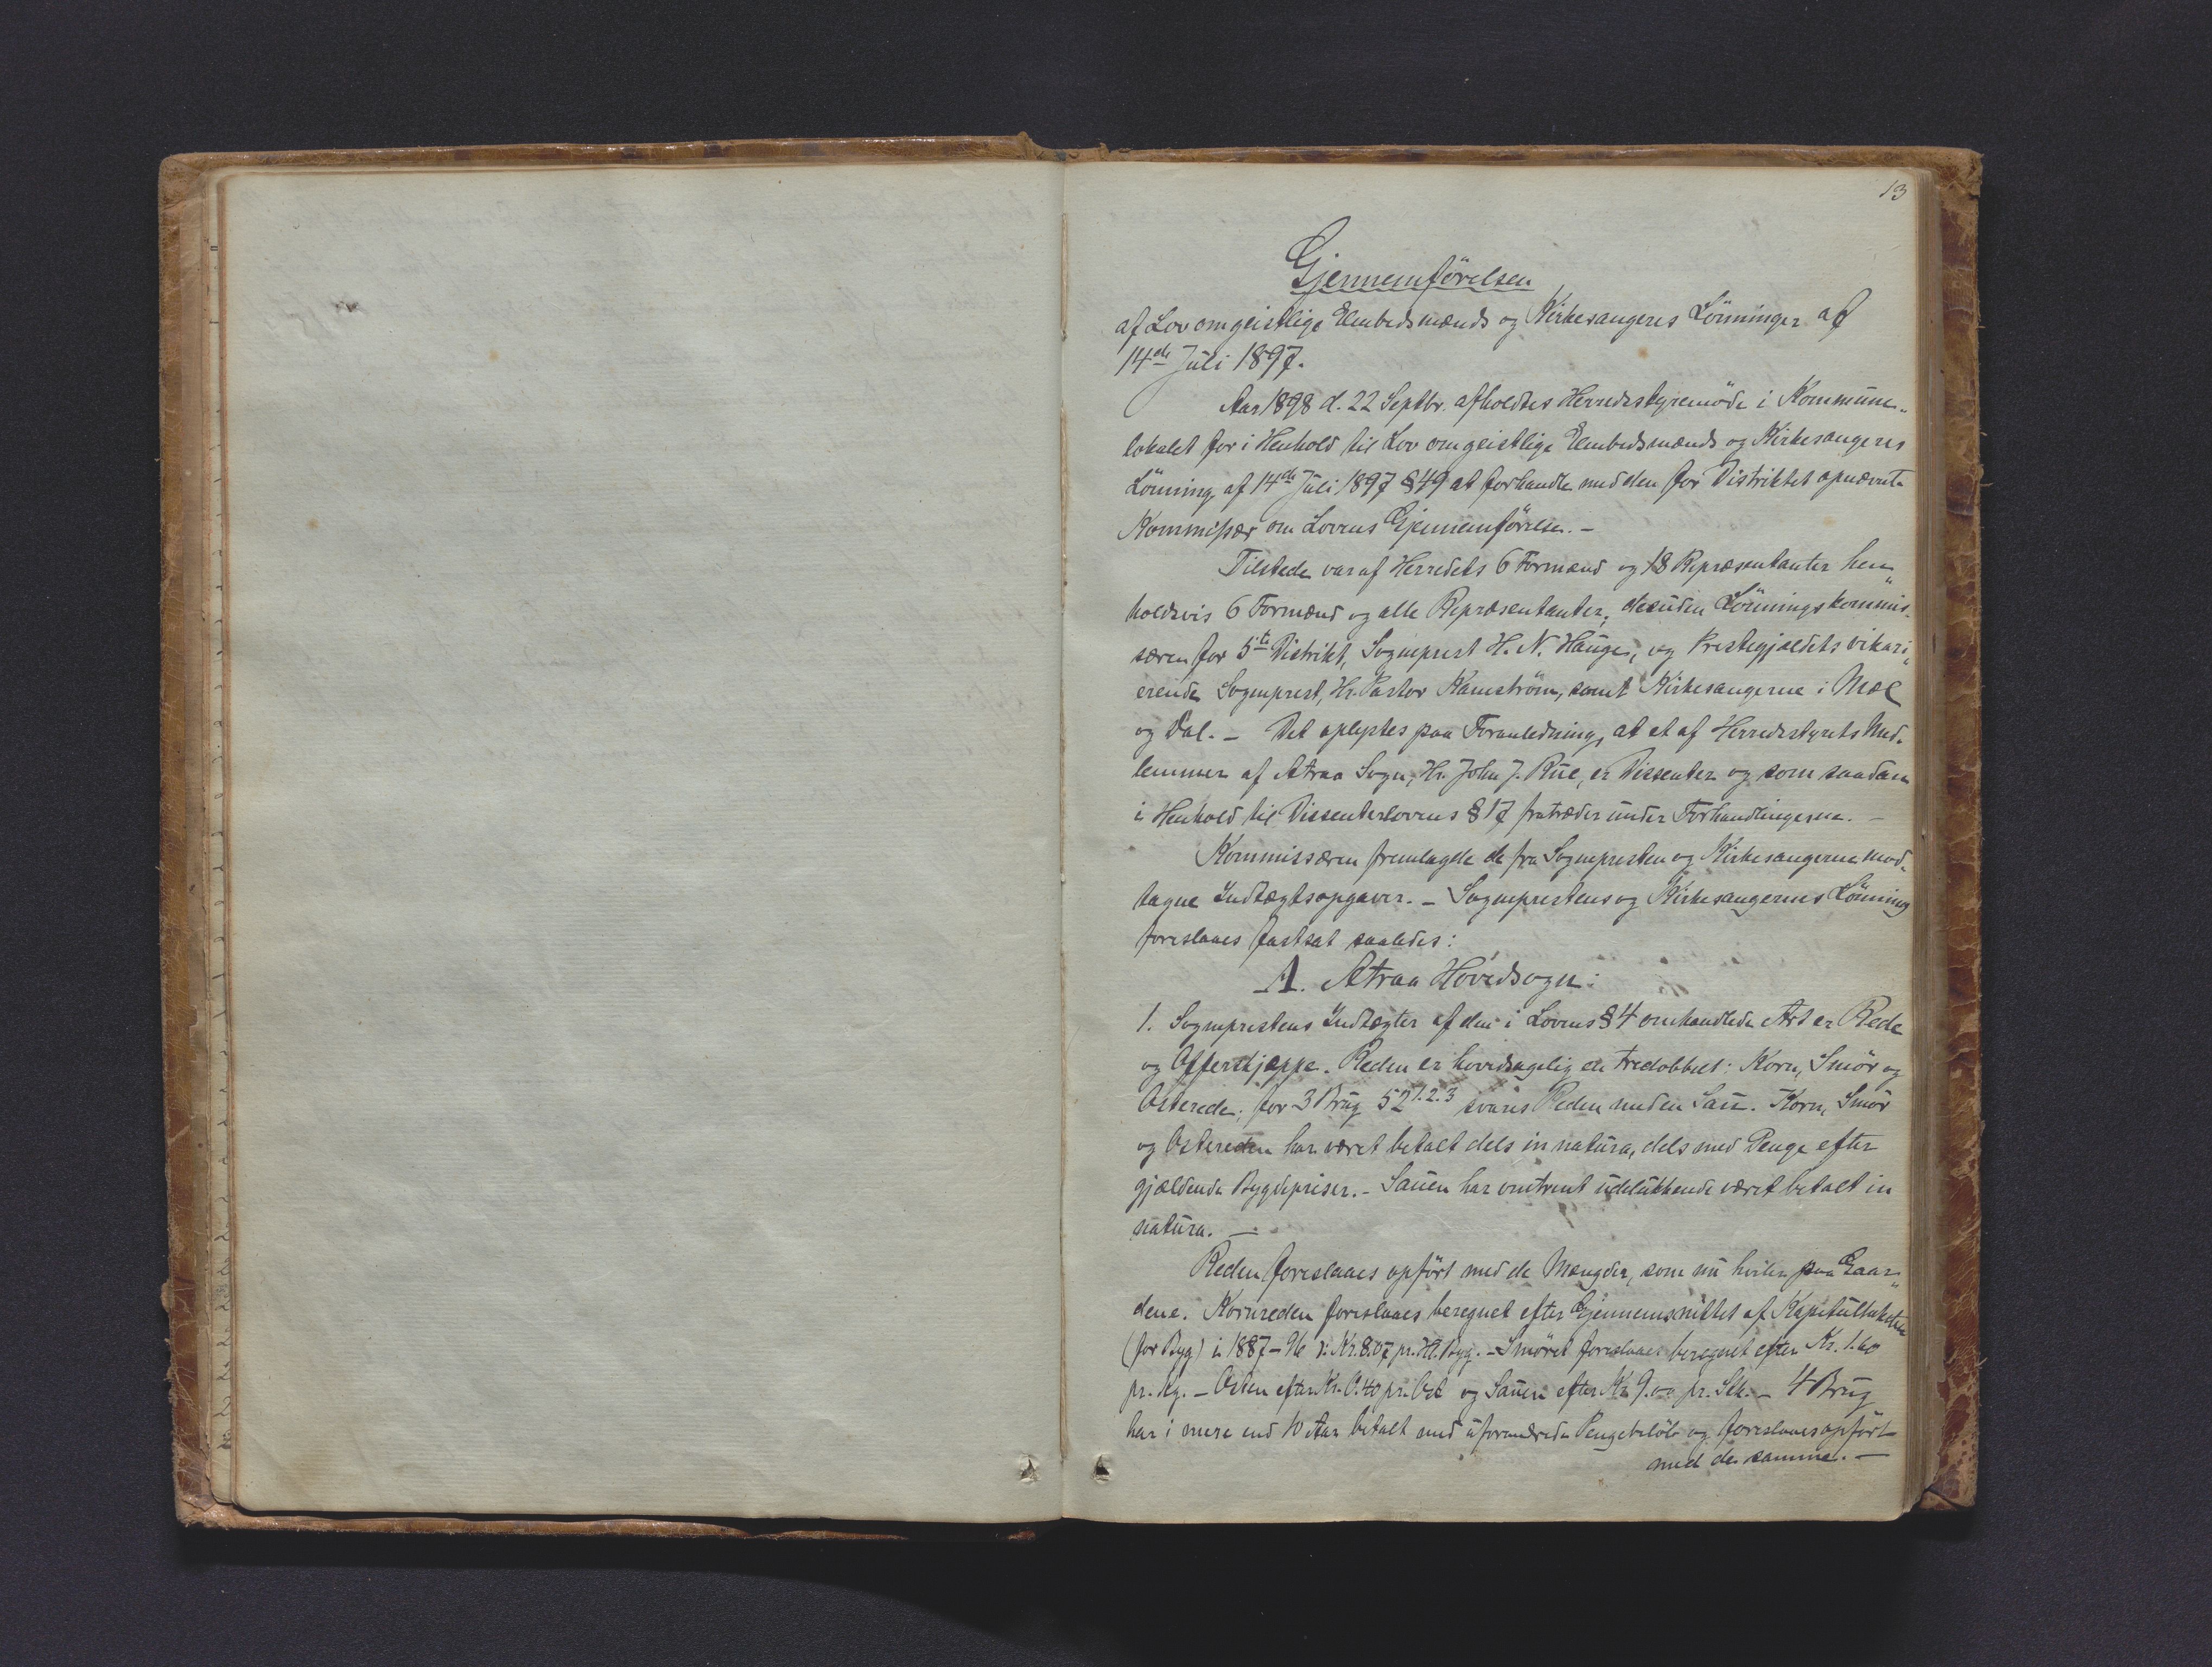 13
Gjennemförelsen
af Lov om geistlige Embedsmænds og Kirkesangeres Lönninger af
14de Juli 1897.
Aar 1898 d. 22 Septbr. afholdtes Herredsstyremöde i Kommune„
lokalet for i Henhold til Lov om geistlige Embedsmænds og Kirkesangeres
Lönning af 14de Juli 1897 § 49 at forhandle med den for Distriktet opnævnte
Kommissær om Lovens Gjennemförelse. –
Tilstede var af Herredets 6 Formænd og 18 Repræsentanter hen„
holdsvis 6 Formænd og alle Repræsentanter, desuden Lönningskommis„
særen for 5te Distrikt, Sogneprest H. N. Hauge, og Prestegjældets vikari„
erende Sogneprest, Hr. Pastor Kamström, samt Kirkesangerne i Mæl
og Dal. – Det oplystes paa Foranledning, at et af Herredsstyrets Med„
lemmer af Atraa Sogn, Hr. John J. Rue, er Dissenter og som saadan
i Henhold til Dissenterlovens § 17 fratræder under Forhandlingerne. –
Kommissæren fremlagde de fra Sognepresten og Kirkesangerne mod„
tagne Indtægtsopgaver. – Sogneprestens og Kirkesangernes Lönning
foreslaaes fastsat saaledes:
A. Atraa Hovedsogn:
1. Sogneprestens Indtægter af den i Lovens § 4 omhandlede Art er Rede
og Offerskjæppe. Reden er hovedsagelig en tredobbelt: Korn, Smör og
Osterede. for 3 Brug 52 1.2.3 svares Reden med en Sau. Korn, Smör
og Ostereden har været betalt dels in natura, dels med Penge efter
gjældende Bygdepriser. – Sauen har omtrent udelukkende været betalt in
natura. –
Reden foreslaaes opfört med de Mængder, som nu hviler paa Gaar„
dene. Kornreden foreslaaes beregnet efter Gjennemsnittet af Kapitultaksten
(for Byg) i 1887–96 ɔ: Kr. 8.07 pr. Hl. Byg. – Smöret foreslaaes beregnet efter Kr. 1.60
pr. kg. – Osten efter Kr. 0.40 pr. Ost og Sauen efter Kr. 9.00 pr. Stk. – 4 Brug
har i mere end 10 Aar betalt med uforandrede Pengebelöb og foreslaaes opfört
med de samme. –